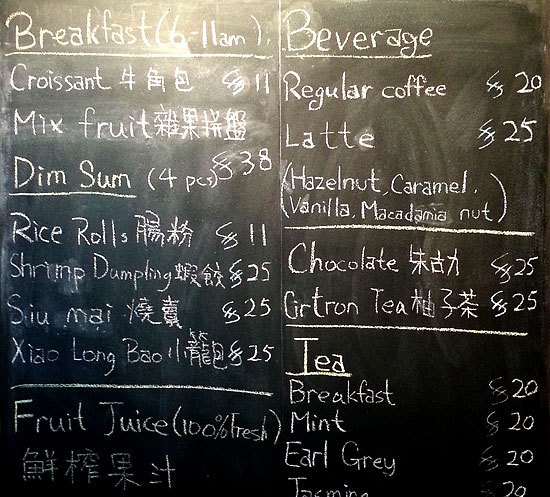 Breakfast (6-11am)
Croissant 牛角包 $ 11
Mix fruit 雜果拼盤
$ 38
Dim Sum (4 pcs)
Rice Rolls 腸粉 $ 11
Shrimp Dumpling 蝦餃 $ 25
Siu mai 燒賣 $ 25
Xiao Long Bao 小籠包 $ 25
Fruit Juice (100% Fresh)
鮮榨果汁
Beverage
Regular coffee $ 20
Latte $ 25
(Hazelnut, Caramel,
Vanilla, Macadamia nut)
Chocolate 朱古力 $ 25
Cirtron Tea 柚子茶 $ 25
Tea
Breakfast $ 20
Mint $ 20
Earl Grey $ 20
Jasmine $ 20